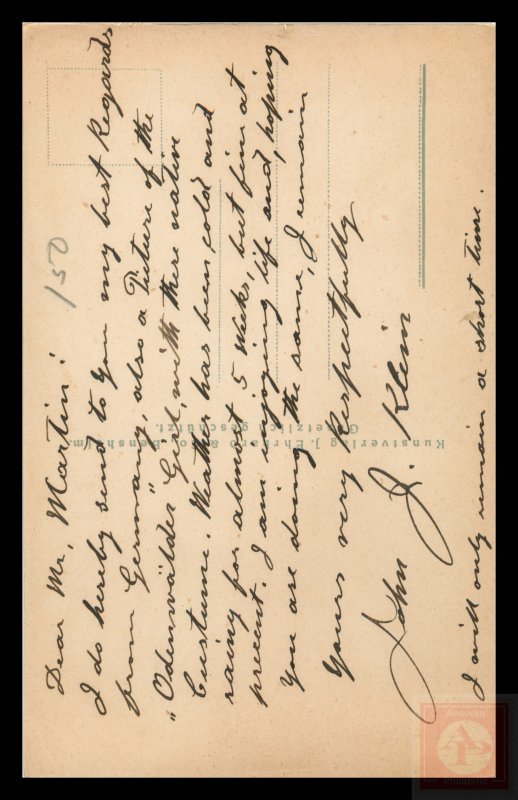 Dear Mr. Martin!
I do hereby send to you my best Regards
from Germany, also a Picture of the
"Odenwälder" Girl, with there native
Custume. Weather has been cold and
rainy for almost 5 weeks, but fine at
precent. I am enjoying life and, hoping
you are doing the same, I remain
Yours very Respectfully
John J. Klein
I will only remain a short time.
150
Kunstverlag J. Ehrhard & Co., Bensheim.
Gesetzlich geschützt.
Ansonia
Philatelic